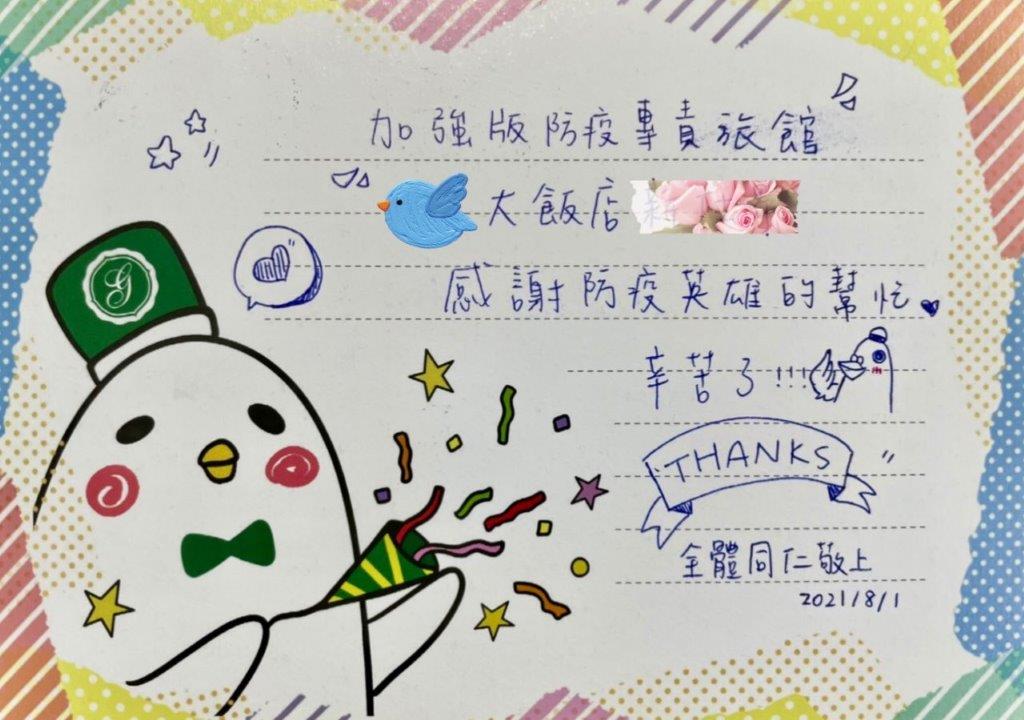 加強版防疫專責旅館
大飯店
感謝防疫英雄的幫忙
辛苦了!!!
THANKS
全體同仁敬上
2021/8/1
G